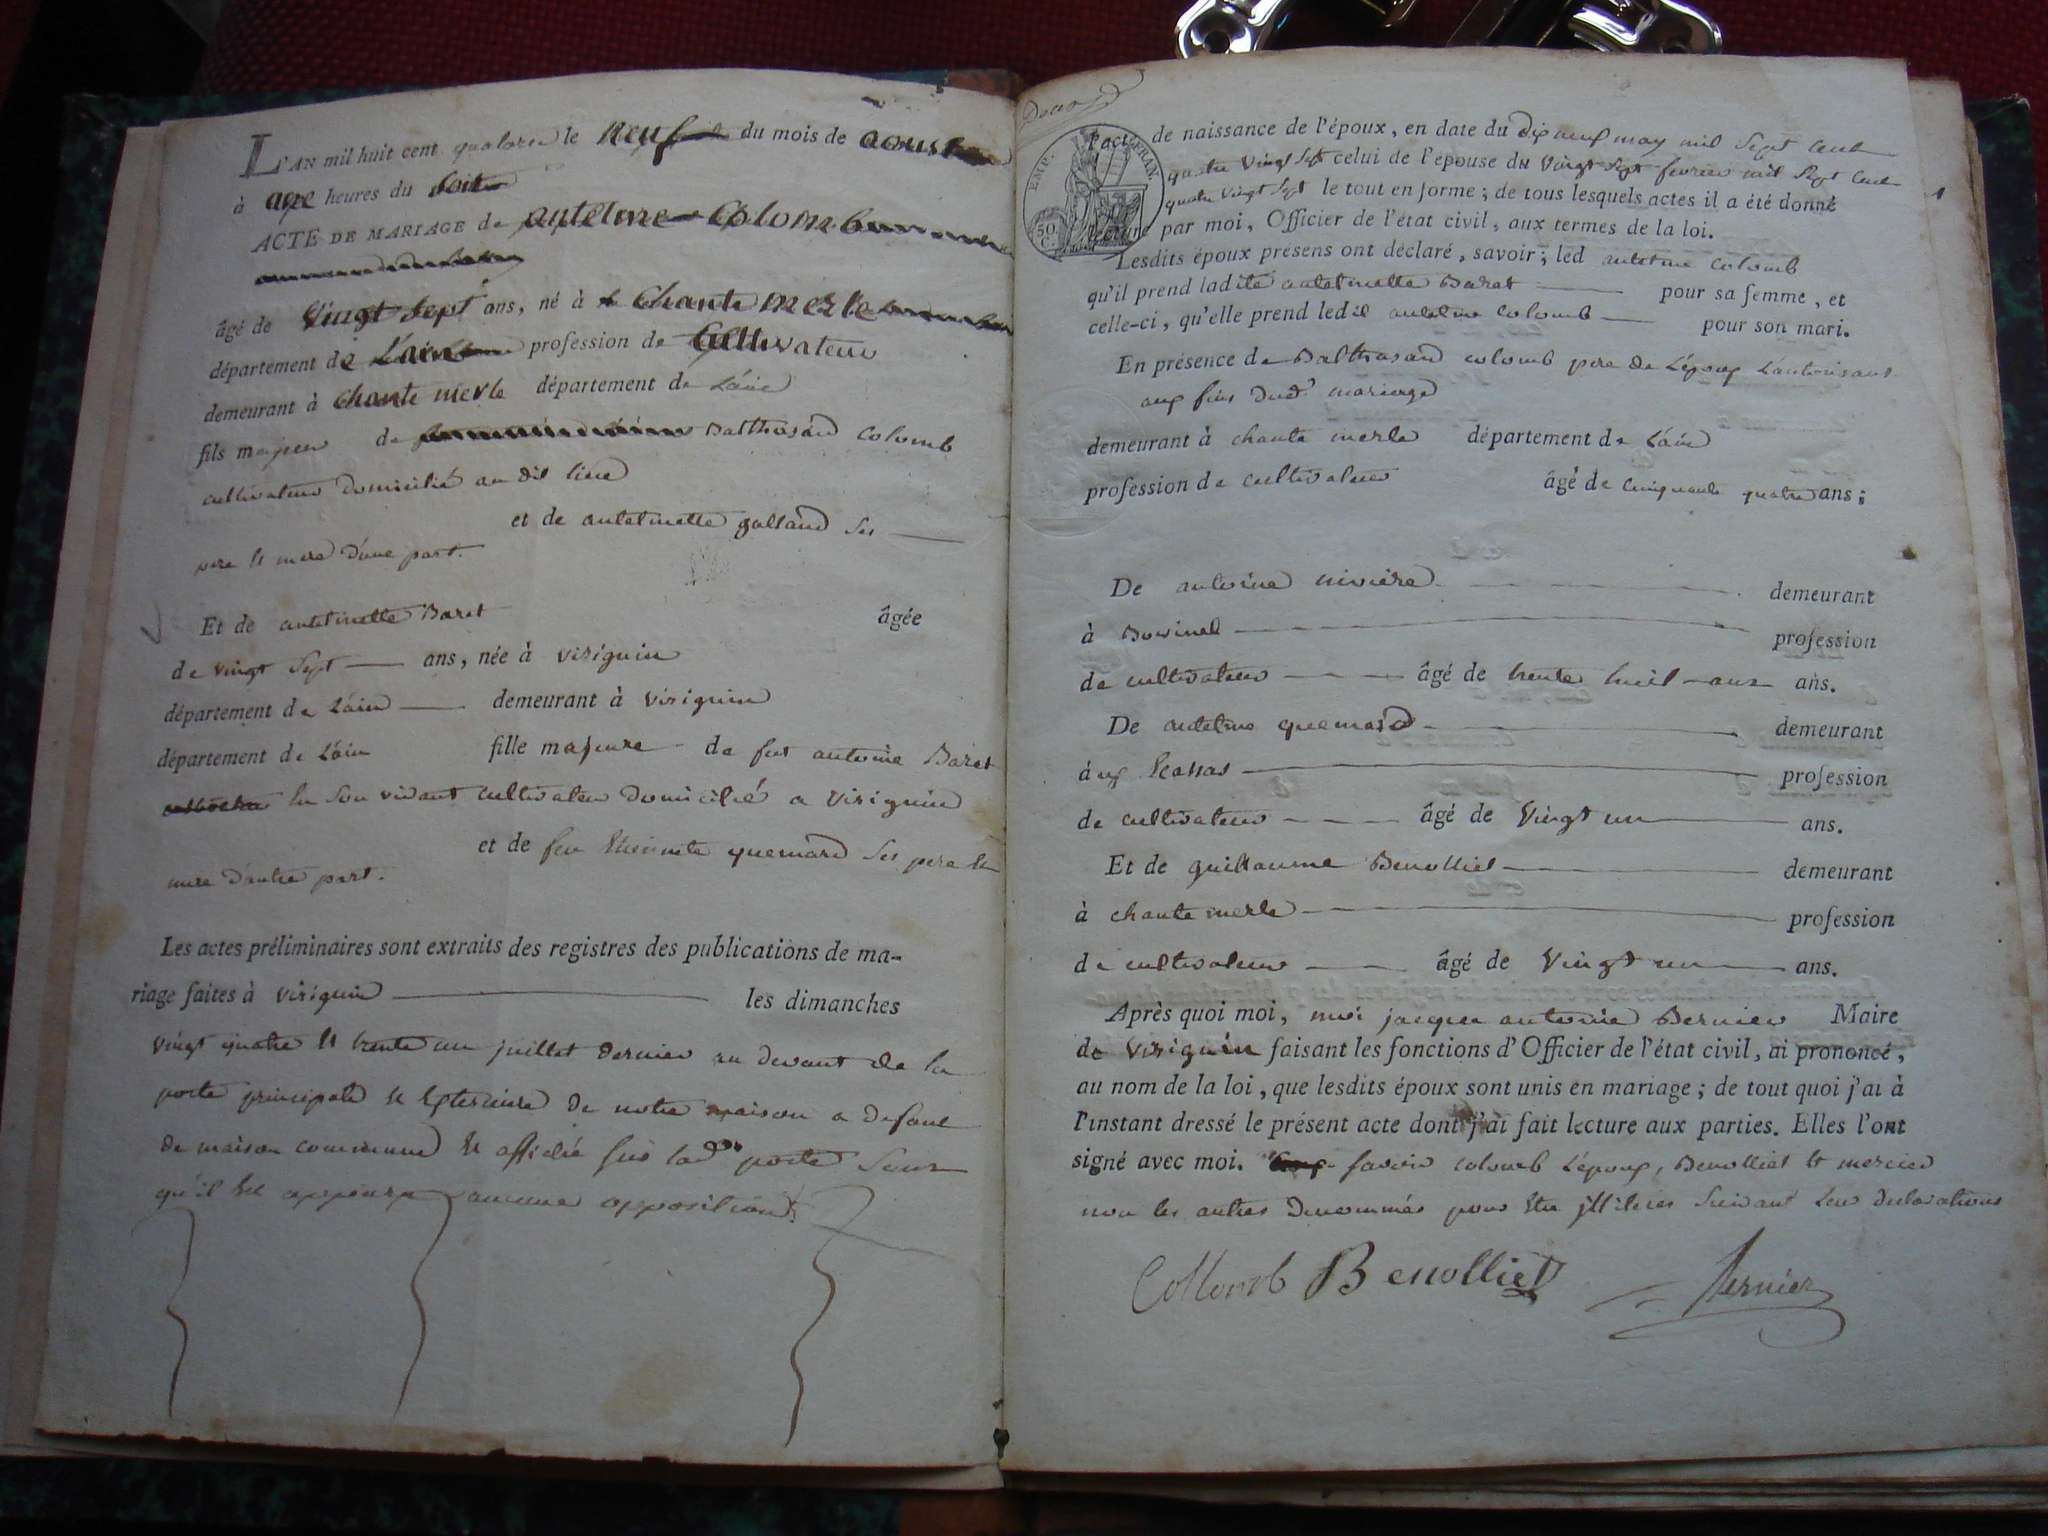 L'AN mil huit cent quatorze le neuf du mois de aoust
à heures du soir
ACTE DE MARIAGE de antelme Colomb
âgé de Vingt Sept ans, né à Chante merle
département de L'ain profession de Cultivateur
demeurant à chante merle département de L'ain
fils majeur de Balthasard colomb
cultivateur domicilié au dit lieu
et de antelmette galland ses
pere et mere d'une part.
Et de antelmette Baret âgée
de vingt sept ans, née à virignin
département de L'ain demeurant à virignin
département de L'ain fille majeure de feu antoine Baret
en son vivant cultivateur domicilié a virignin
et de feu Etiennete quemard ses pere et
mere d'autre part.
Les actes préliminaires sont extraits des registres des publications de ma-
riage faites à virignin les dimanches
vingt quatre et trente un juillet dernier au devant de la
porte principale et Exterieure de notre maison a defaut
de maison commune et affiché sur lad porte sans
qu'il aucune opposition
50 C.
EMP. FRAN.
l'acte de naissance de l'époux, en date du dix neuf may mil sept cent
quatre vingt sept celui de l'épouse du vingt sept fevrier mil sept cent
quatre vingt sept le tout en forme ; de tous lesquels actes il a été donné
lecture par moi, Officier de l'état civil, aux termes de la loi.
Lesdits époux présens ont déclaré, savoir ; led antelme colomb
qu'il prend ladite antelmette Baret pour sa femme, et
celle-ci, qu'elle prend ledit antelme colomb pour son mari.
En présence de Balthasard colomb pere de L'époux L'autorisant
aux fins dud.t mariage
demeurant à chante merle département de L'ain
profession de cultivateur âgé de cinquante quatre ans ;
De antoine niviere demeurant
à profession
de cultivateur âgé de trente huit ans ans.
De antelme quemard demeurant
profession
de cultivateur âgé de Vingt un ans.
Et de guillaume Benolliet demeurant
à chante merle profession
de cultivateur âgé de Vingt un ans.
Après quoi moi, moi jacques antoine Bernier Maire
de Virignin faisant les fonctions d'Officier de l'état civil, ai prononcé,
au nom de la loi, que lesdits époux sont unis en mariage ; de tout quoi j'ai à
l'instant dressé le présent acte dont j'ai fait lecture aux parties. Elles l'ont
signé avec moi. savoir colomb L'époux, Benolliet et
non les autres denommés pour etre illiteres suivant leur declarations
Collomb Benolliet Bernier